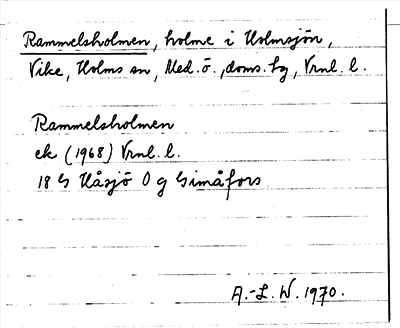 Rammelsholmen, holme i Holmsjön,
Vike, Holms sn, Med. ö., doms. hg, Vrnl. l.
Rammelsholmen
ek (1968) Vrnl. l.
18 G Håsjö 0 g Gimåfors
A.-L. W. 1970.